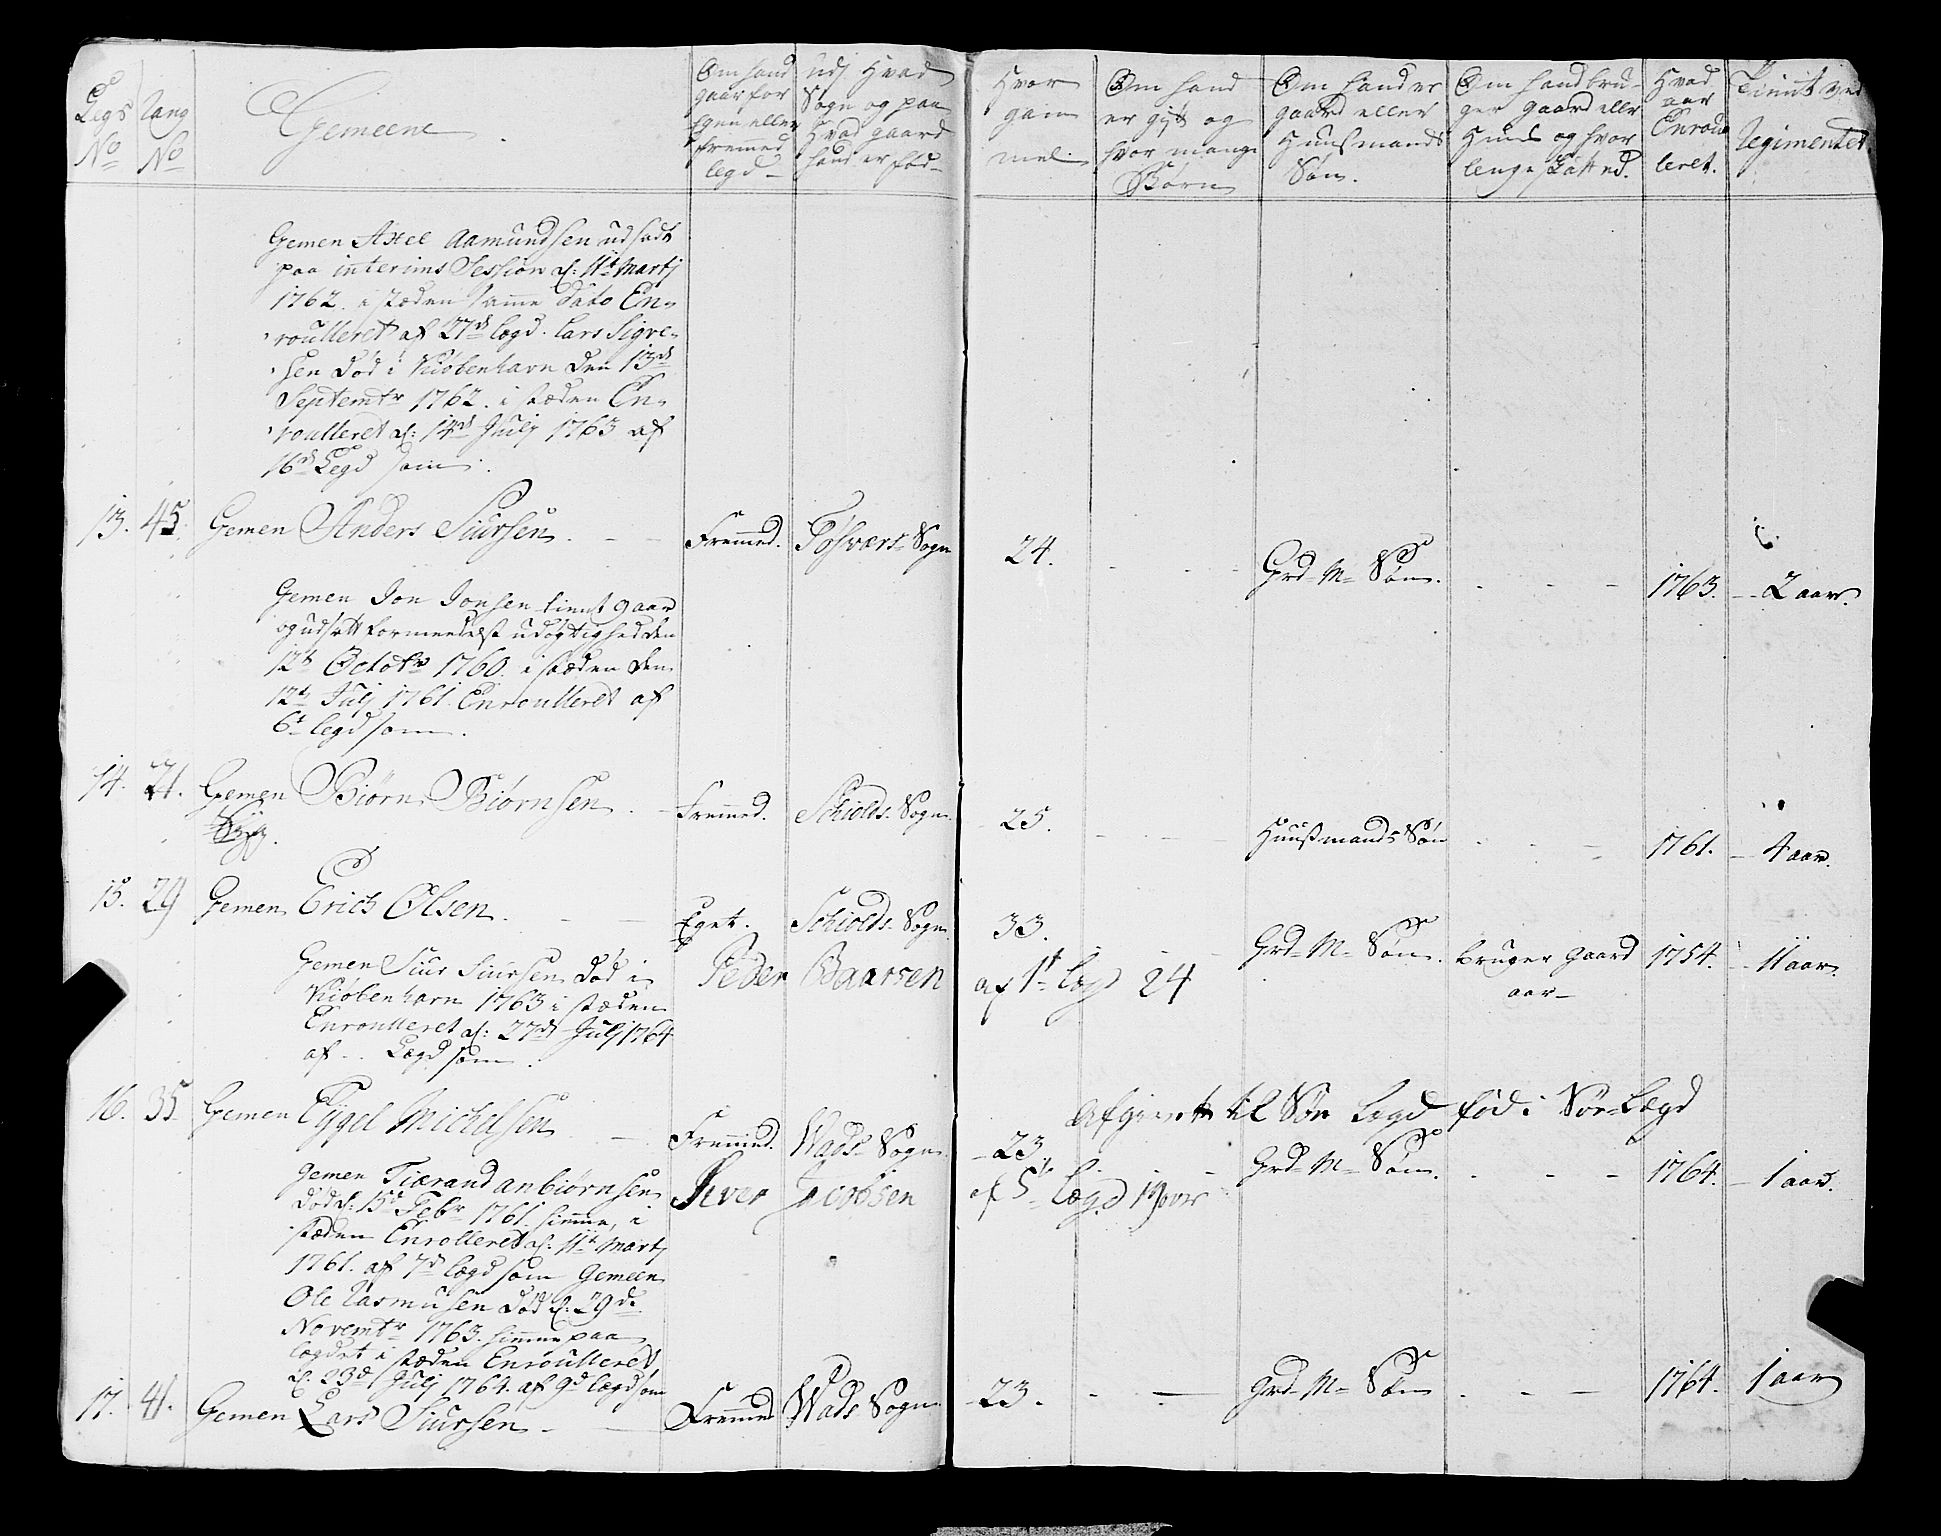 Legs No
Rang No
Gemeene
Om hand gaar for Egen eller fremmed legd
Udj Hvad Sogn og paa Hvad gaard hand er fød
Hvor gammel
Om hand er gift og hvor mange Børn
Om hand er gaard eller Huusmands Søn.
Om hand bruger gaard eller Huus og hvor lenge
Hvad aar Enroulleret.
Tient ved Regimentet
Gemen Axel Aamundsen udsadt
paa interims Session d: 11t Martj
1762. i stæden samme Dato En-
roulleret af 27d Lægd. Lars Sigve-
sen Død i Kiøbenhavn den 13d
Septembr 1762. i stæden En-
roulleret d: 14d Julj 1763 af
16d Legd som
13. 45. Gemen Anders Siursen. Fremmed. Tøsværs Sogn 24. Grd-M- Søn. 1763. 2 aar.
Gemen Jon Jonsen tient 9 aar
og udsatt formedelst udøgtighed den
12t Octobr 1760. i stæden den
12t Julj 1761. Enroulleret af
6t legd som.
14. 21. Gemen Biørn Biørnsen. Fremmed. Schiolds Sogn 25. Huusmands Søn 1761. 4 aar.
15. 29 Gemen Erich Olsen. Eget. Schiolds Sogn 33. Grd-M- Søn. bruger gaard aar 1754. 11 aar.
Peder Baarsen af 1t Lægd 24
Gemen Siur Siursen Død i
Kiøbenhavn 1763 i stæden
Enroulleret d: 27d Julj 1764
af .. Lægd som.
Afgivet til Sør Legd fød i Sør-Lægd
16. 35. Gemen Eygel Michelsen Fremmed. Wads Sogn 23. Grd-M- Søn. 1764. 1 aar.
Iver Jacobsen af 5t Lægd 19
Gemen Tiærand anbiørnsen
Død d: 15d Febr 1761. hiemme, i
stæden Enrolleret d: 11t Martj
1761. af 7d Lægd som Gemeen
Ole Rasmusen Død d. 29de
Novembr 1763. hiemme paa
lægdet i stæden Enroulleret
d. 23d Julj 1764. af 9d Lægd som
17. 41. Gemen Lars Siursen Fremmed Wads Sogn 23. Grd-M- Søn 1764. 1 aar